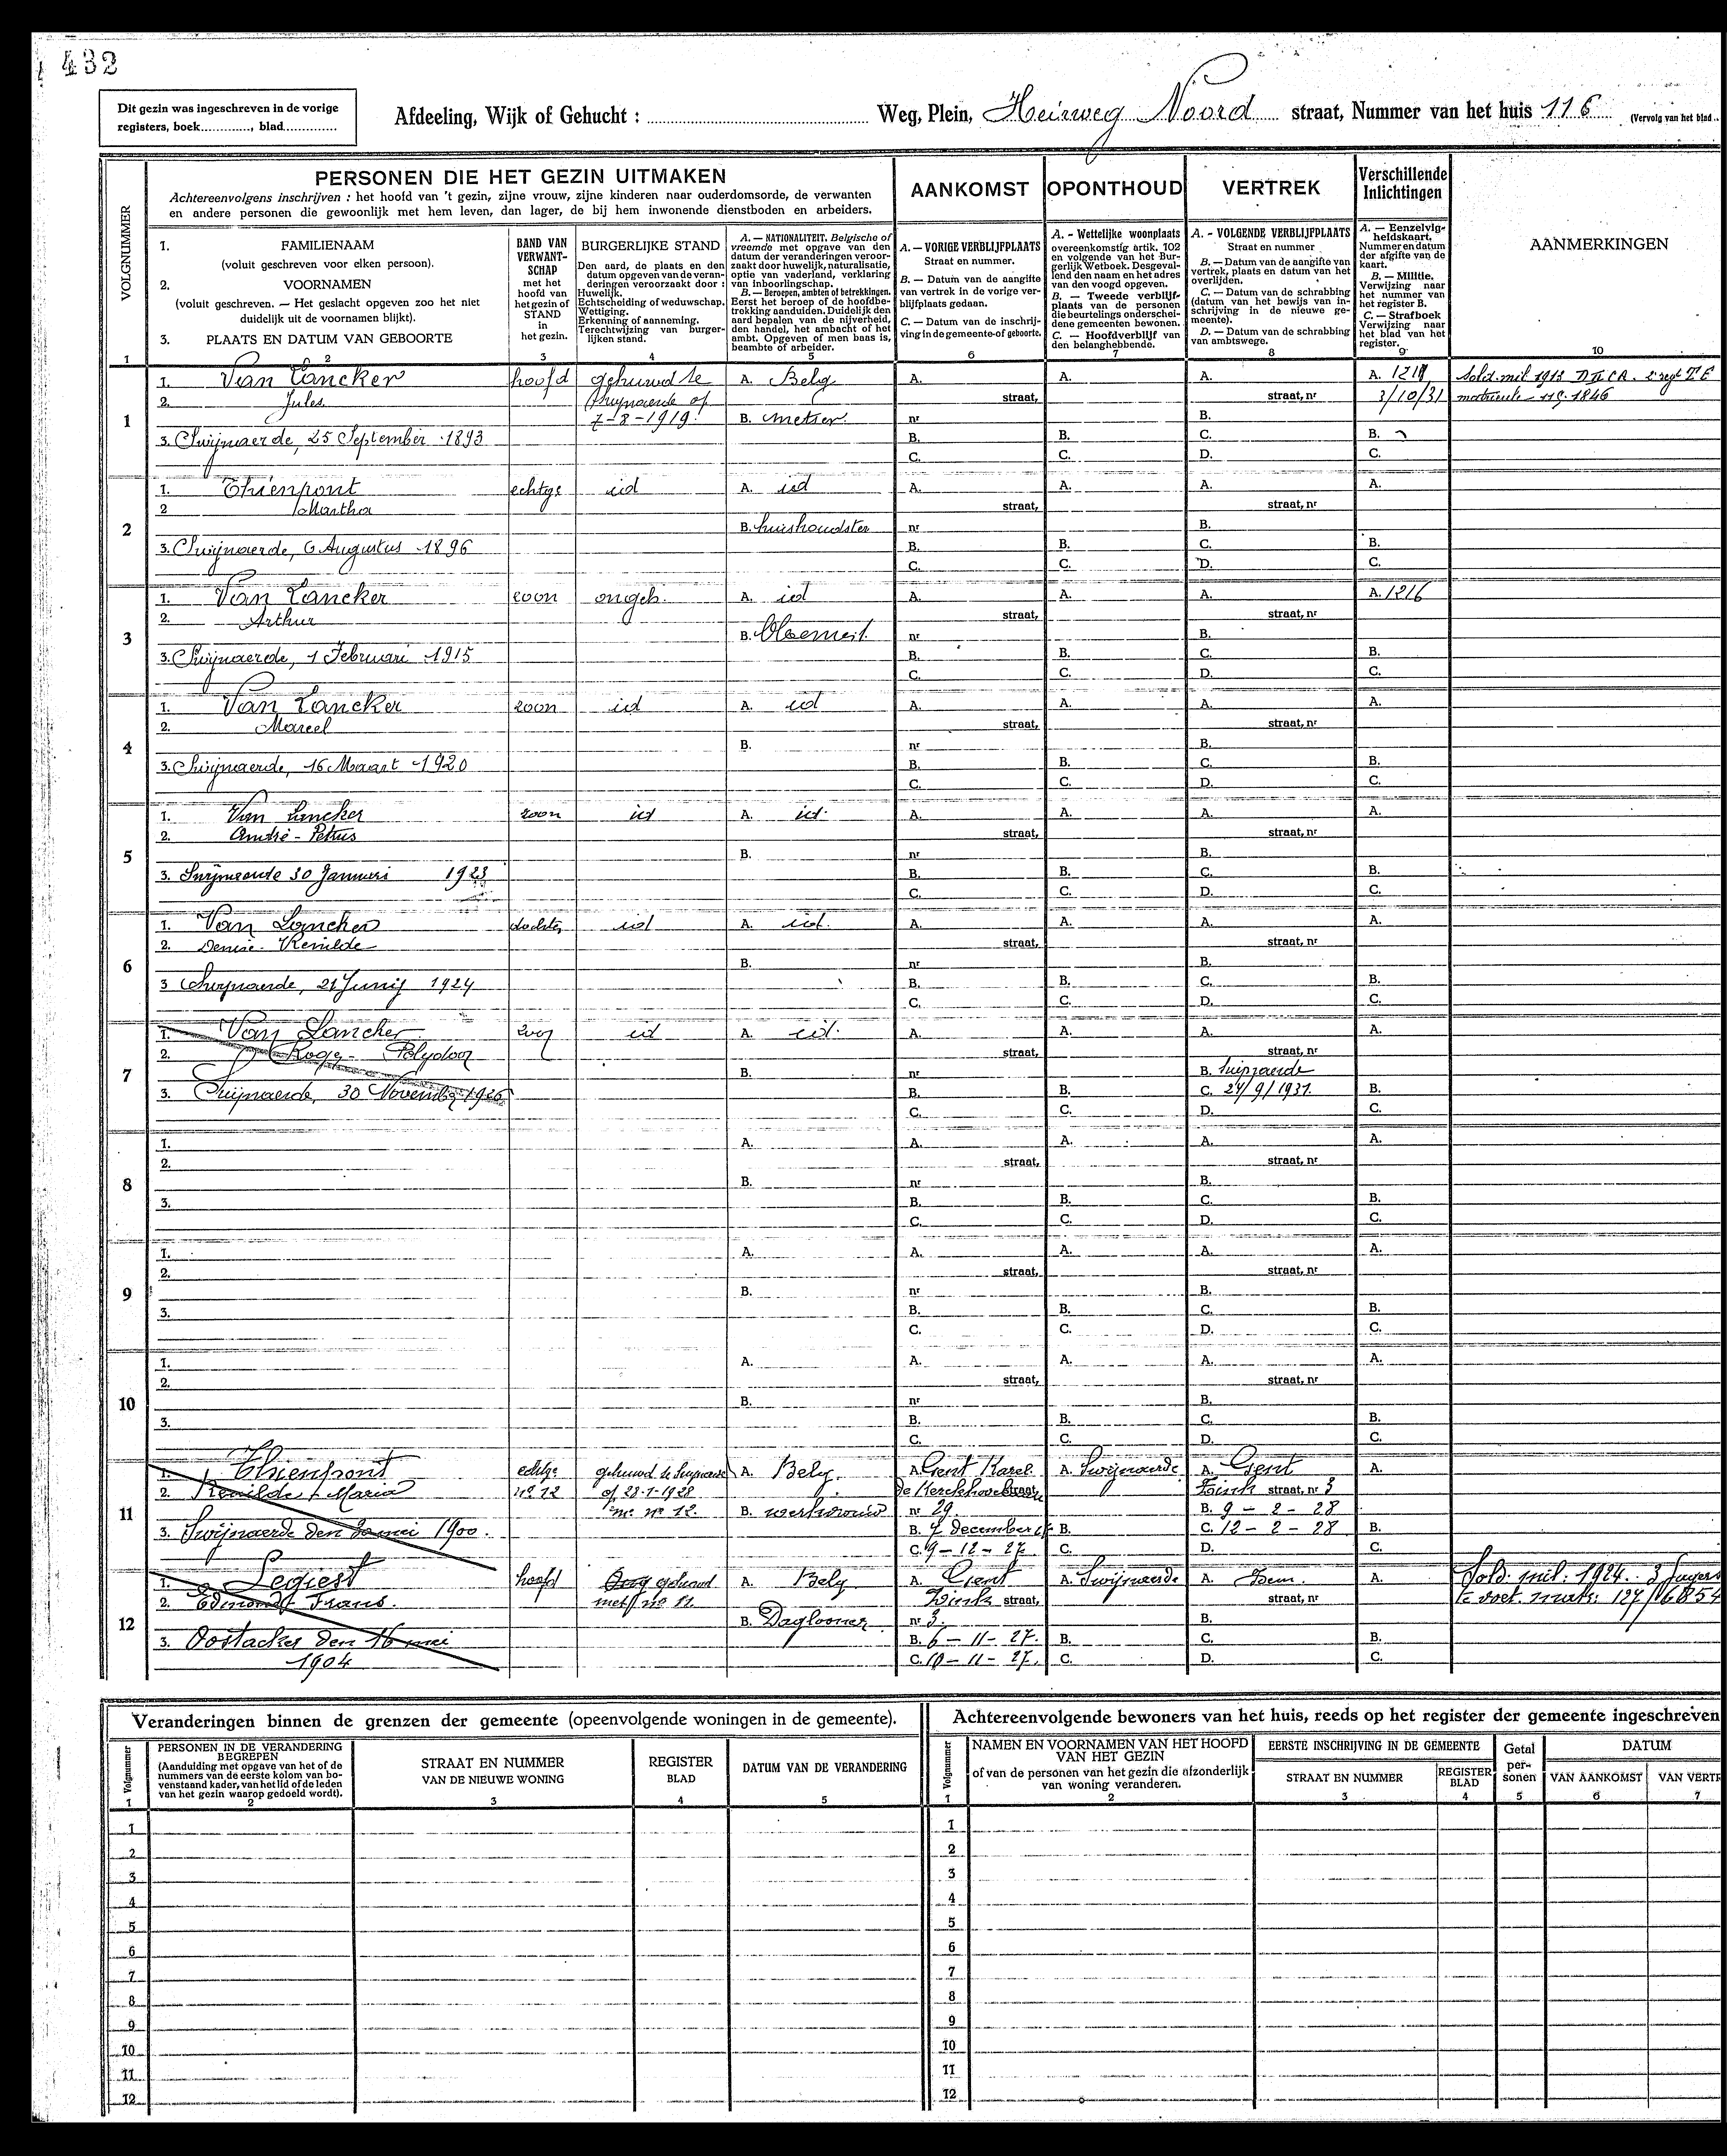 432
Dit gezin was ingeschreven in de vorige
registers, boek............., blad..............
Afdeeling, Wijk of Gehucht : Weg, Plein, Heirweg Noord straat, Nummer van het huis 116 (Vervolg van het blad..
VOLGNUMMER
1
PERSONEN DIE HET GEZIN UITMAKEN
Achtereenvolgens inschrijven : het hoofd van 't gezin, zijne vrouw, zijne kinderen naar ouderdomsorde, de verwanten
en andere personen die gewoonlijk met hem leven, dan lager, de bij hem inwonende dienstboden en arbeiders.
1. FAMILIENAAM
(voluit geschreven voor elken persoon).
2. VOORNAMEN
(voluit geschreven. — Het geslacht opgeven zoo het niet
duidelijk uit de voornamen blijkt).
3. PLAATS EN DATUM VAN GEBOORTE
2
BAND VAN
VERWANT-
SCHAP
met het
hoofd van
het gezin of
STAND
in
het gezin.
3
BURGERLIJKE STAND
Den aard, de plaats en den
datum opgeven van de veran-
deringen veroorzaakt door :
Huwelijk.
Echtscheiding of weduwschap.
Wettiging.
Erkenning of aanneming.
Terechtwijzing van burger-
lijken stand.
4
A. — NATIONALITEIT. Belgische of
vreemde met opgave van den
datum der veranderingen veroor-
zaakt door huwelijk, naturalisatie,
optie van vaderland, verklaring
van inboorlingschap.
B. — Beroepen, ambten of betrekkingen.
Eerst het beroep of de hoofdbe-
trekking aanduiden. Duidelijk den
aard bepalen van de nijverheid,
den handel, het ambacht of het
ambt. Opgeven of men baas is,
beambte of arbeider.
5
AANKOMST
A. — VORIGE VERBLIJFPLAATS
Straat en nummer.
B. — Datum van de aangifte
van vertrek in de vorige ver-
blijfplaats gedaan.
C. — Datum van de inschrij-
ving in de gemeente of geboorte.
6
OPONTHOUD
A. - Wettelijke woonplaats
overeenkomstig artik. 102
en volgende van het Bur-
gerlijk Wetboek. Desgeval-
lend den naam en het adres
van den voogd opgeven.
B. — Tweede verblijf-
plaats van de personen
die beurtelings onderschei-
dene gemeenten bewonen.
C. — Hoofdverblijf van
den belanghebbende.
7
VERTREK
A. - VOLGENDE VERBLIJFPLAATS
Straat en nummer
B. — Datum van de aangifte van
vertrek, plaats en datum van het
overlijden.
C. — Datum van de schrabbing
(datum van het bewijs van in-
schrijving in de nieuwe ge-
meente).
D. — Datum van de schrabbing
van ambtswege.
8
Verschillende
Inlichtingen
A. — Eenzelvig-
heidskaart.
Nummer en datum
der afgifte van de
kaart.
B. — Militie.
Verwijzing naar
het nummer van
het register B.
C. — Strafboek
Verwijzing naar
het blad van het
register.
9
AANMERKINGEN
10
1
1. Van Lancker hoofd gehuwd te A. Belg A. A. A. A. 1217 Sold. mil 1913
2. Jules Swijnaerde op straat, straat, nr 3/10/31
7-8-1919. B. metser. nr B.
3. Swijnaerde, 25 September 1893 B. B. C. B.
C. C. D. C.
2
1. Thienpont echtge id A. id A. A. A. A.
2 Martha straat, straat, nr
B. huishoudster nr B.
3. Swijnaerde, 6 Augustus 1896 B. B. C. B.
C. C. D. C.
3
1. Van Lancker zoon ongeh. A. id A. A. A. A. 1216
2. Arthur straat, straat, nr
B. nr B.
3. Swijnaerde, 1 Februari 1915 B. B. C. B.
C. C. D. C.
4
1. Van Lancker zoon id A. id A. A. A. A.
2. Marcel straat, straat, nr
B. nr B.
3. Swijnaerde, 16 Maart 1920 B. B. C. B.
C. C. D. C.
5
1. Van Lancker zoon id A. id. A. A. A. A.
2. André - Petrus straat, straat, nr
B. nr B.
3. Swijnaerde 30 Januari 1923 B. B. C. B.
C. C. D. C.
6
1. Van Lancker dochter id A. id. A. A. A. A.
2. Denise - Renilde straat, straat, nr
B. nr B.
3 Swijnaerde, 21 Junij 1924 B. B. C. B.
C. C. D. C.
7
1. Van Lancker zoon id A. id. A. A. A. A.
2. Roger - Polydoor straat, straat, nr
B. nr B. Swijnaerde
3. Swijnaerde, 30 November 1926 B. B. C. 24/9/1931. B.
C. C. D. C.
8
1. A. A. A. A. A.
2. straat, straat, nr
B. nr B.
3. B. B. C. B.
C. C. D. C.
9
1. A. A. A. A. A.
2. straat, straat, nr
B. nr B.
3. B. B. C. B.
C. C. D. C.
10
1. A. A. A. A. A.
2. straat, straat, nr
B. nr B.
3. B. B. C. B.
C. C. D. C.
11
1. Thienpont echtge gehuwd te Swijnaerde A. Belg. A. Gent Karel A. Swijnaerde A. Gent A.
2. Renilde Maria nr 12 op 28-1-1928 de Kerckhove straat, straat, nr 3
met nr 12. B. werkvrouw nr 29. B. 9 - 2 - 28
3. Swijnaerde den 30 mei 1900. B. 7 december B. C. 12 - 2 - 28 B.
C. 9 - 12 - 27 C. D. C.
12
1. Legiest hoofd Ong gehuwd A. Belg A. Gent A. Swijnaerde A. Idem. A. Sold. mil. 1924.
2. Edmond Frans. met nr 11 straat, straat, nr
B. Daglooner nr 3. B.
3. Oostacker den 16 mei B. 6 - 11 - 27. B. C. B.
1904 C. 10 - 11 - 27. C. D. C.
Veranderingen binnen de grenzen der gemeente (opeenvolgende woningen in de gemeente).
Volgnummer
1
PERSONEN IN DE VERANDERING
BEGREPEN
(Aanduiding met opgave van het of de
nummers van de eerste kolom van bo-
venstaand kader, van het lid of de leden
van het gezin waarop gedoeld wordt).
2
STRAAT EN NUMMER
VAN DE NIEUWE WONING
3
REGISTER
BLAD
4
DATUM VAN DE VERANDERING
5
1
2
3
4
5
6
7
8
9
10
11
12
Achtereenvolgende bewoners van het huis, reeds op het register der gemeente ingeschreven
Volgnummer
1
NAMEN EN VOORNAMEN VAN HET HOOFD
VAN HET GEZIN
of van de personen van het gezin die afzonderlijk
van woning veranderen.
2
EERSTE INSCHRIJVING IN DE GEMEENTE
STRAAT EN NUMMER
3
REGISTER
BLAD
4
Getal
per-
sonen
5
DATUM
VAN AANKOMST
6
VAN VERTR
7
1
2
3
4
5
6
7
8
9
10
11
12